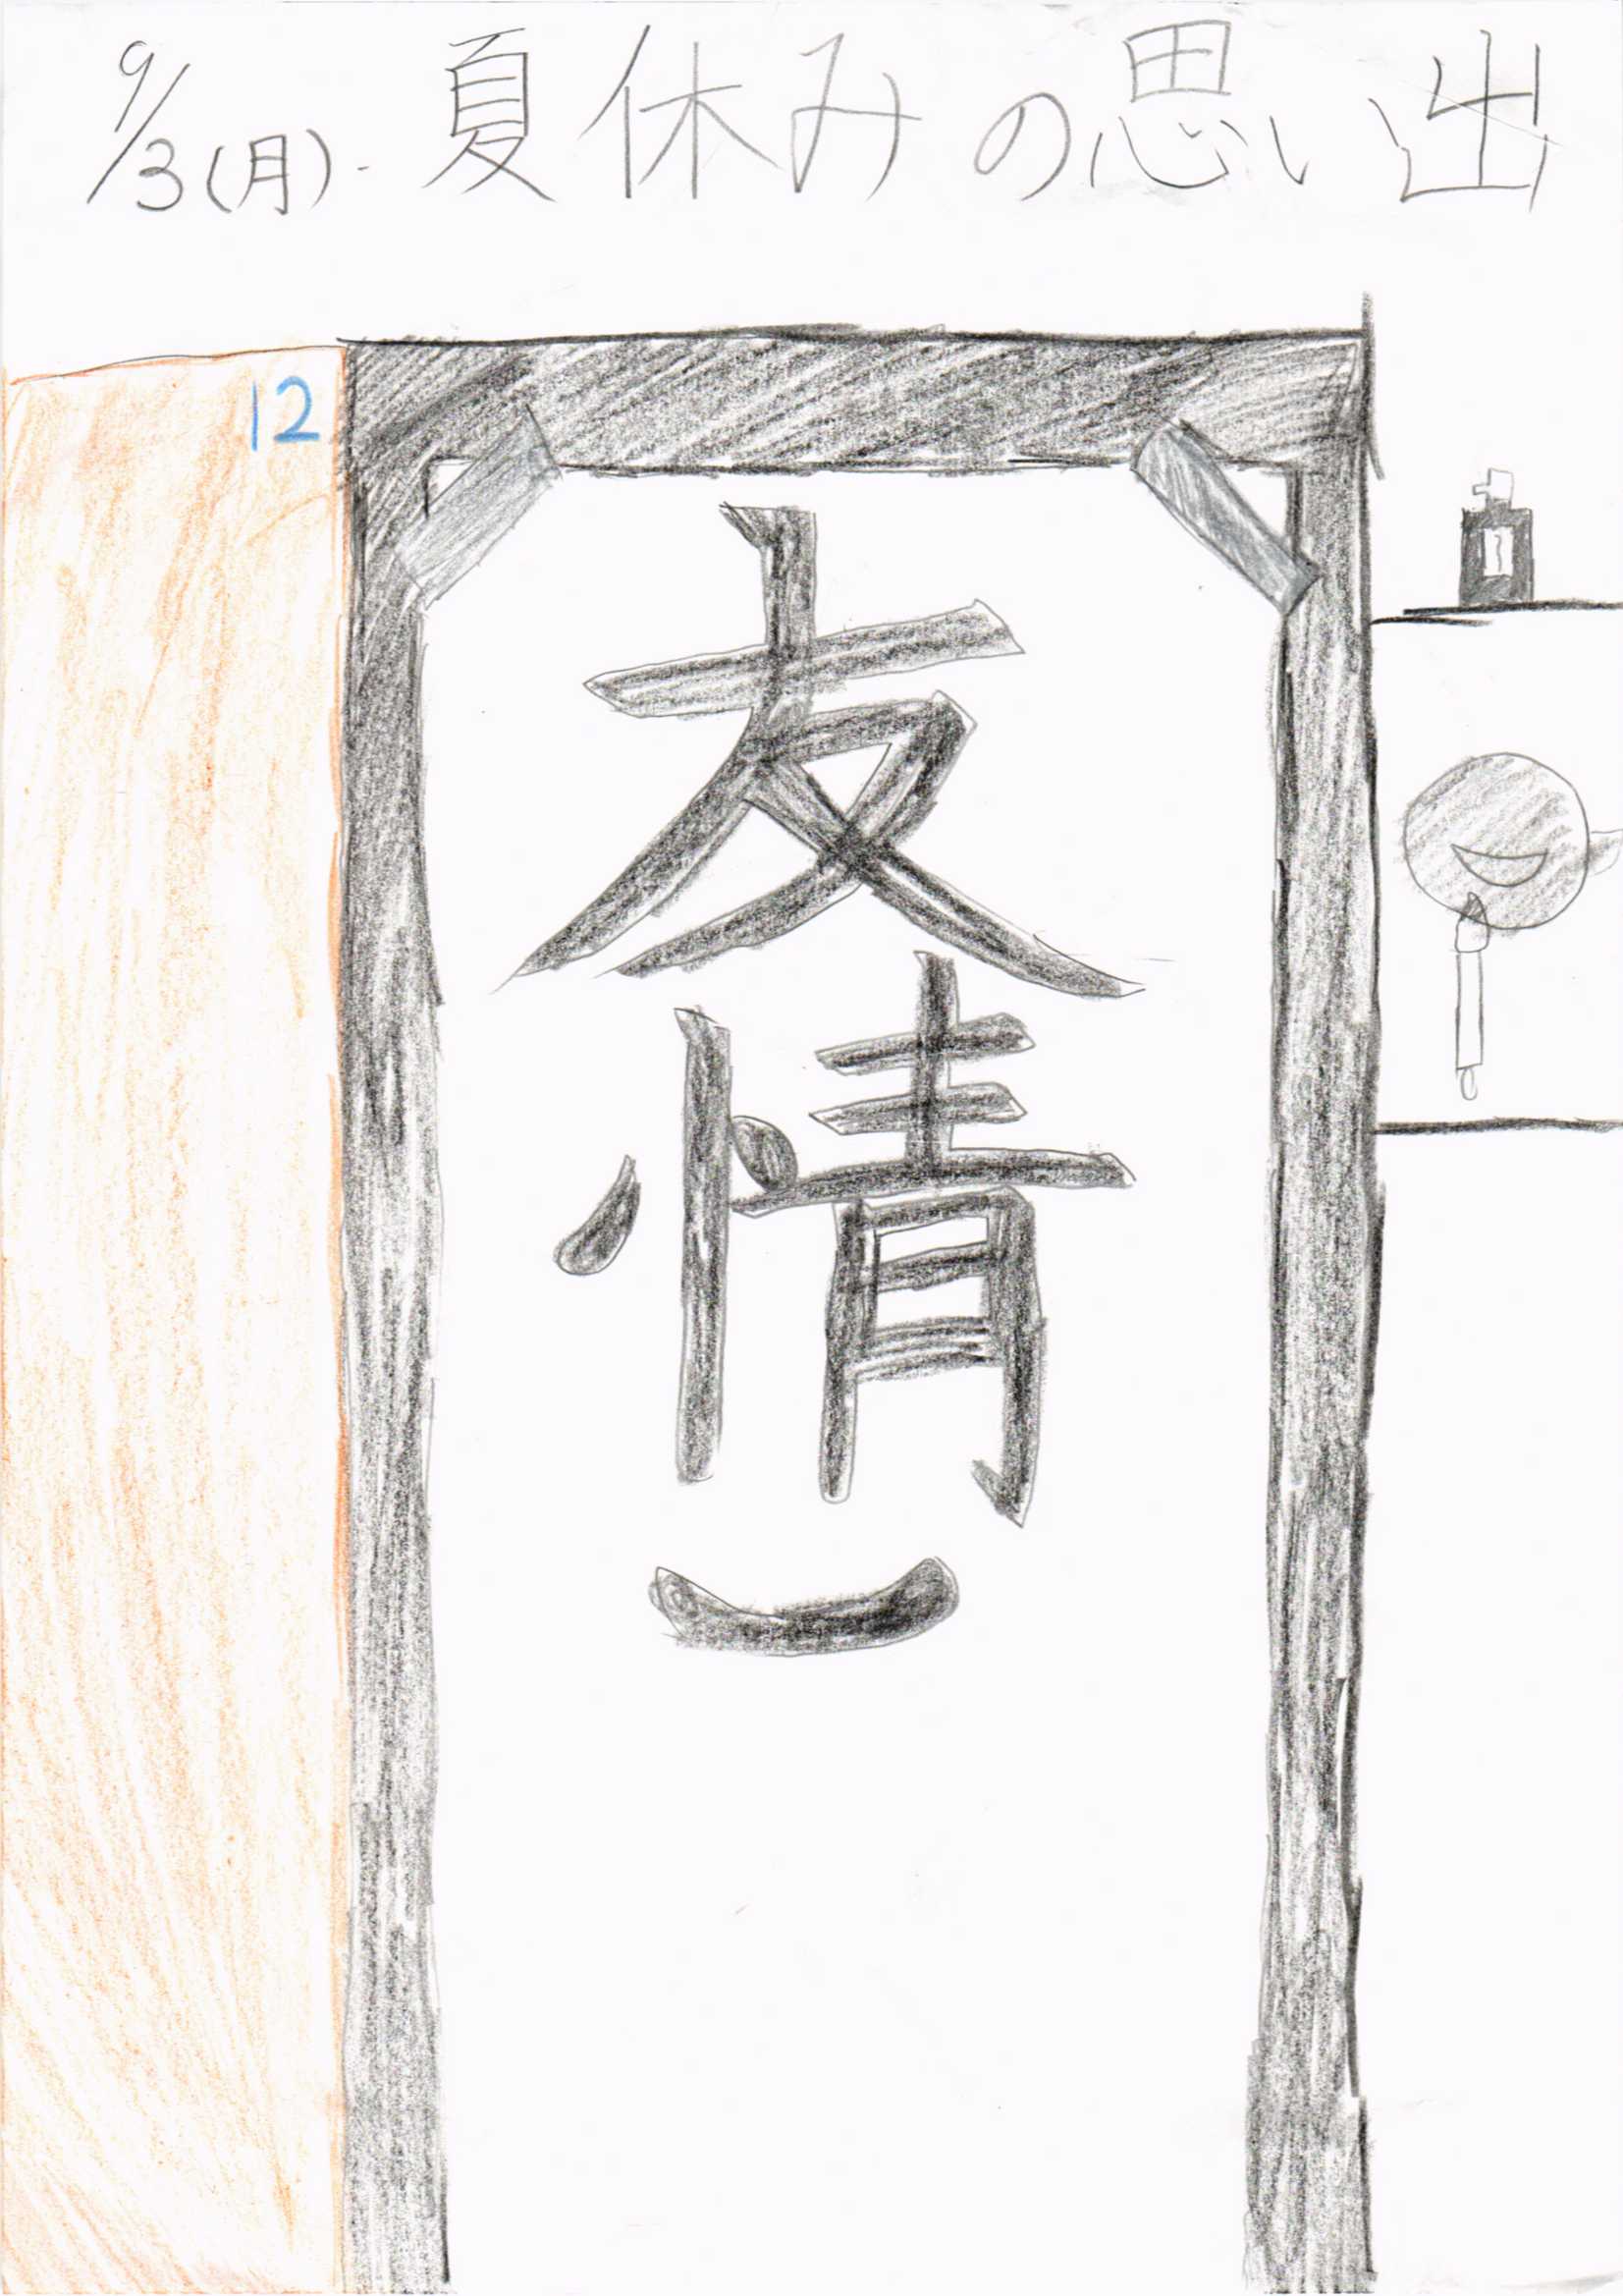 9/3(月). 夏休みの思い出
12
友情